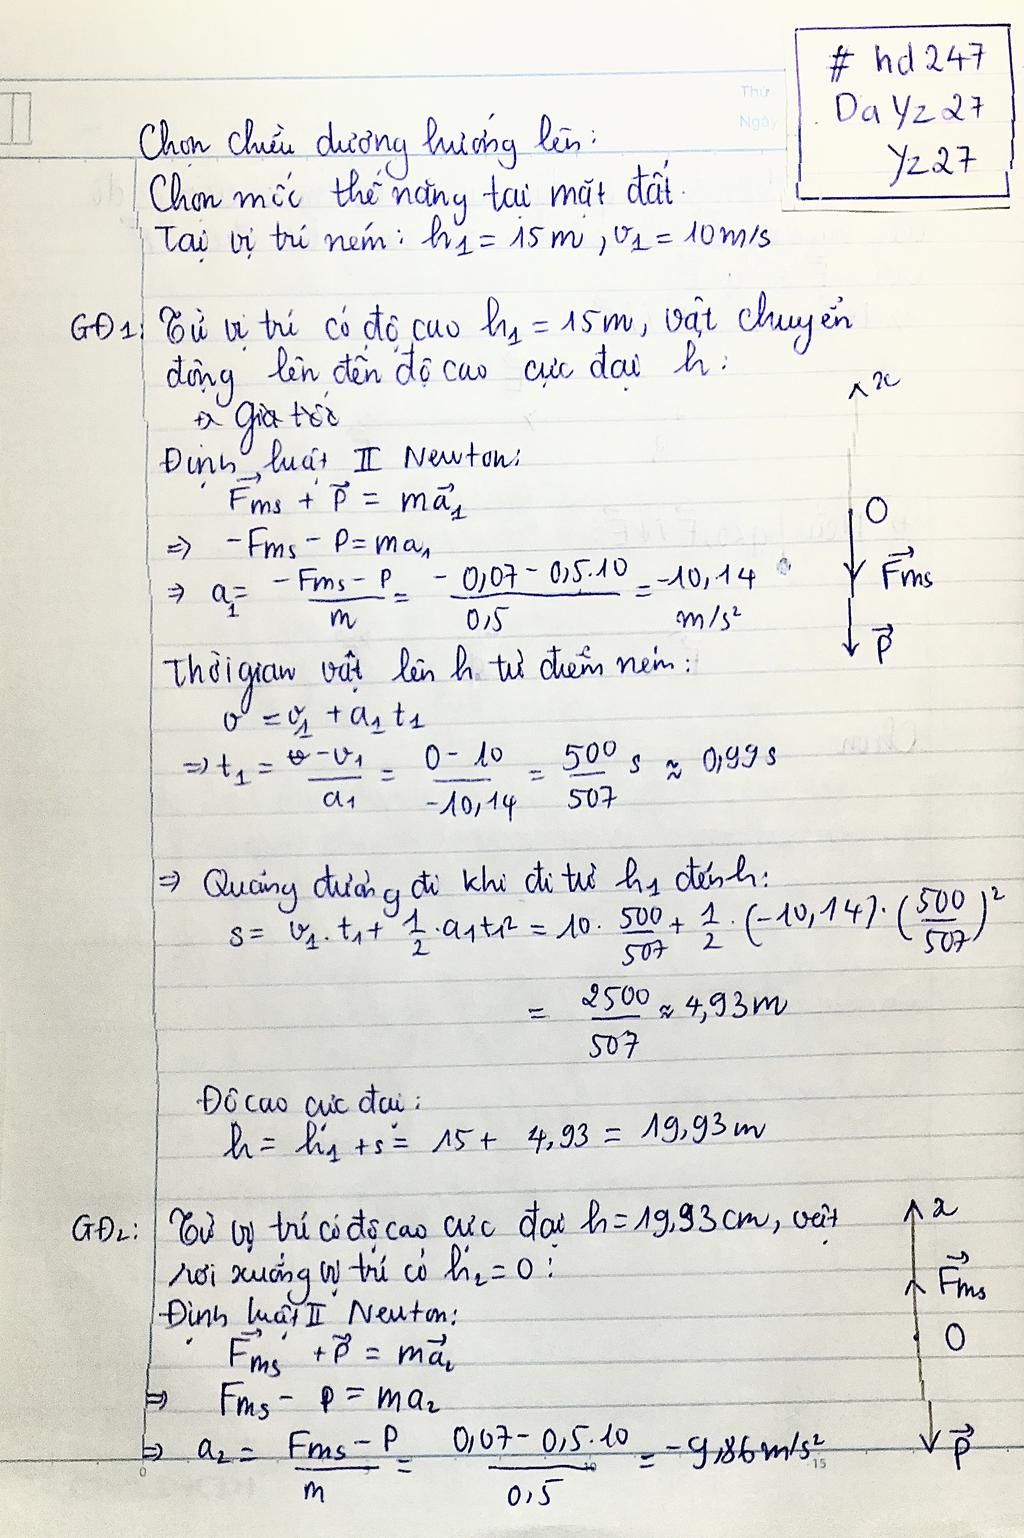 # hd247
DaYz27
Yz27
Thứ
Ngày
Chọn chiều dương hướng lên:
Chọn mốc thế năng tại mặt đất.
Tại vị trí ném: h₁ = 15m, v₁ = 10m/s
GĐ1: Từ vị trí có độ cao h₁ = 15m, vật chuyển
động lên đến độ cao cực đại h:
Gia tốc
Định luật II Newton:
F⃗ms + P⃗ = ma⃗₁
⇒ -Fms - P = ma₁
⇒ a₁ = (-Fms - P)/m = (-0,07 - 0,5.10)/0,5 = -10,14 m/s²
Thời gian vật lên h từ điểm ném:
v = v₁ + a₁t₁
⇒ t₁ = (v - v₁)/a₁ = (0 - 10)/(-10,14) = 500/507 s ≈ 0,99s
⇒ Quãng đường đi khi đi từ h₁ đến h:
s = v₁.t₁ + 1/2.a₁t₁² = 10. 500/507 + 1/2.(-10,14).(500/507)²
= 2500/507 ≈ 4,93m
Độ cao cực đại:
h = h₁ + s = 15 + 4,93 = 19,93m
x
O
F⃗ms
P⃗
GĐ2: Từ vị trí có độ cao cực đại h = 19,93cm, vật
rơi xuống vị trí có h₂ = 0:
Định luật II Newton:
F⃗ms + P⃗ = ma⃗₂
⇒ Fms - P = ma₂
⇒ a₂ = (Fms - P)/m = (0,07 - 0,5.10)/0,5 = -9,86m/s²
x
F⃗ms
O
P⃗
0
10
15